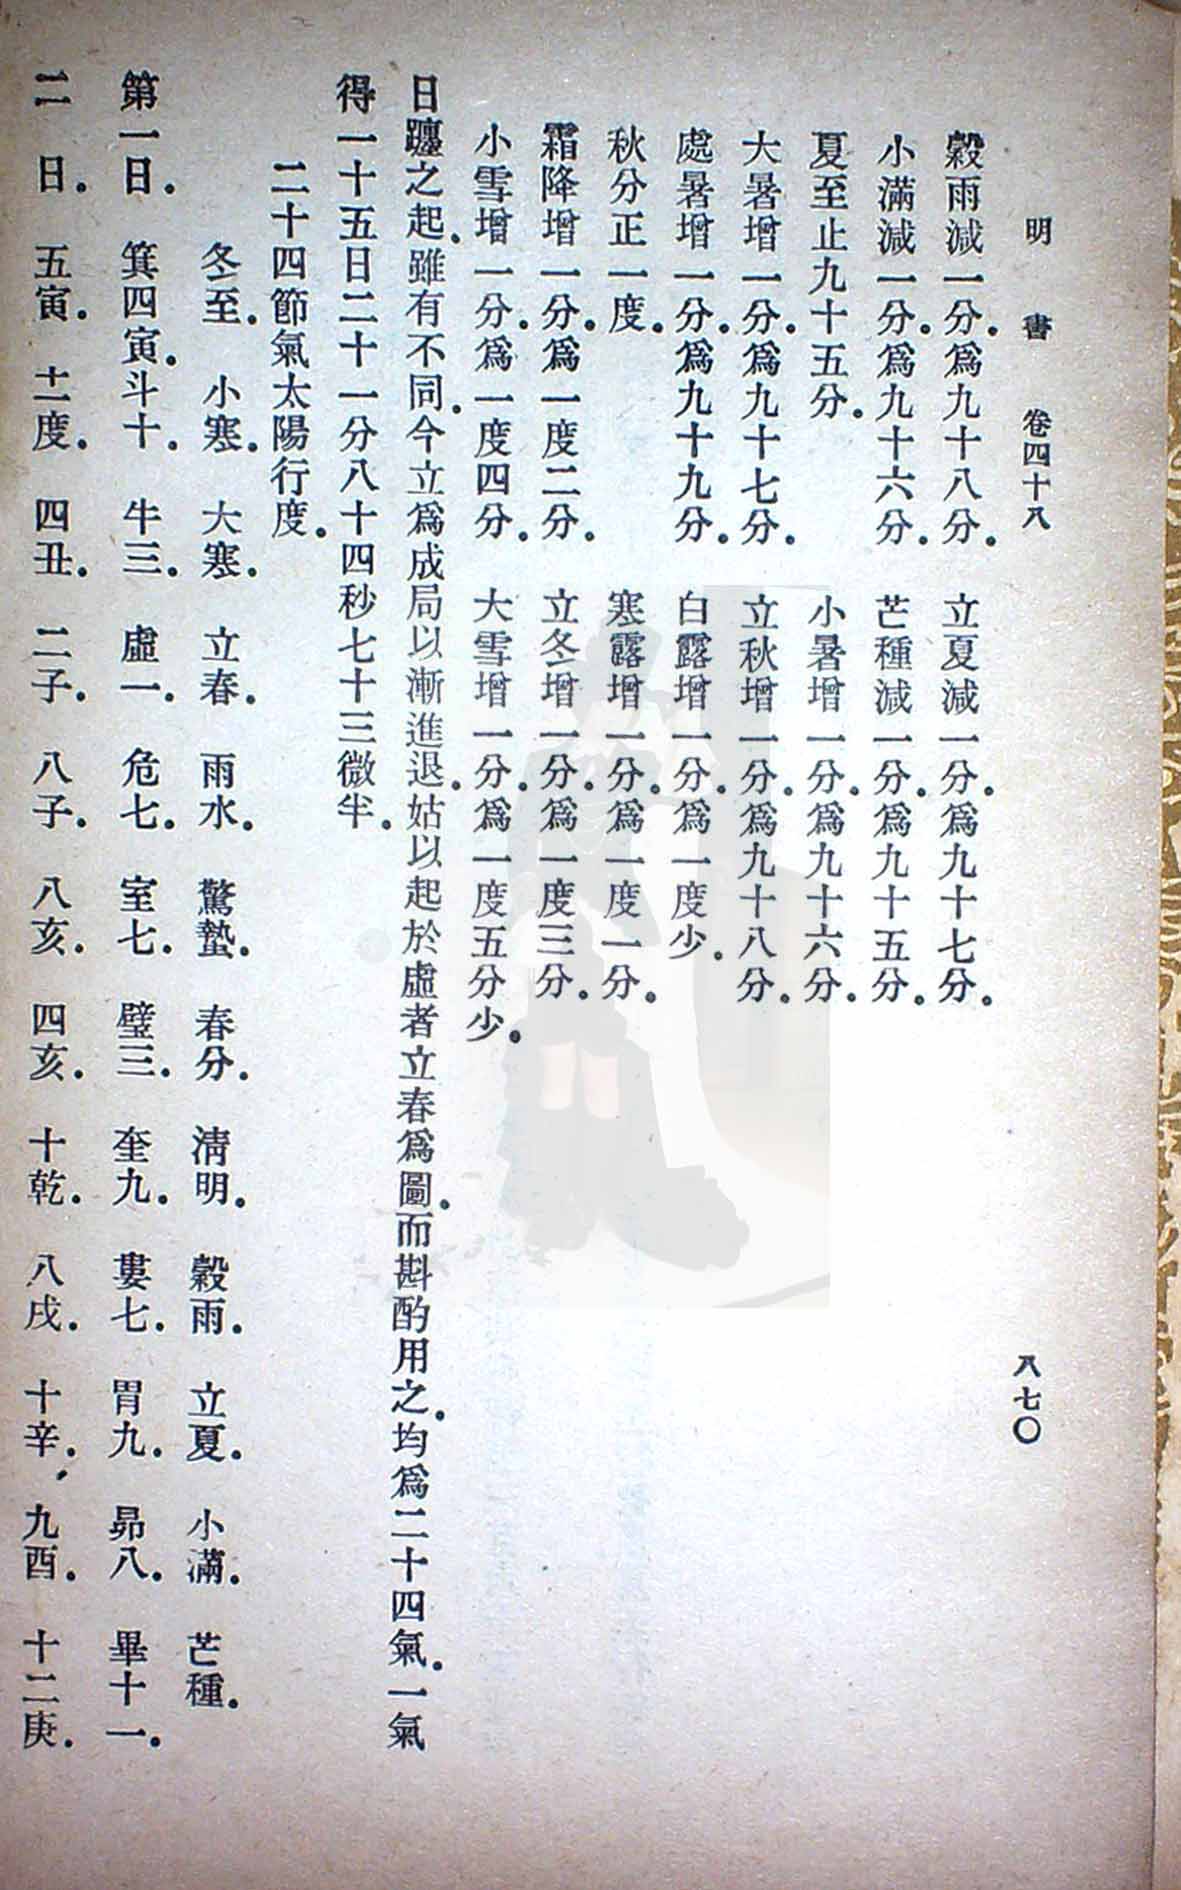 明書 卷四十八 八七〇
穀雨減一分。爲九十八分。 立夏減一分。爲九十七分。
小滿減一分。爲九十六分。 芒種減一分。爲九十五分。
夏至止九十五分。 小暑增一分。爲九十六分。
大暑增一分。爲九十七分。 立秋增一分。爲九十八分。
處暑增一分。爲九十九分。 白露增一分。爲一度少。
秋分正一度。 寒露增一分。爲一度一分。
霜降增一分。爲一度二分。 立冬增一分。爲一度三分。
小雪增一分。爲一度四分。 大雪增一分。爲一度五分少。
日躔之起。雖有不同。今立爲成局以漸進退。姑以起於虛者立春爲圖。而斟酌用之。均爲二十四氣。一氣
得一十五日二十一分八十四秒七十三微半。
二十四節氣太陽行度。
冬至。 小寒。 大寒。 立春。 雨水。 驚蟄。 春分。 淸明。 穀雨。 立夏。 小滿。 芒種。
第一日。 箕四寅。斗十。 牛三。 虛一。 危七。 室七。 璧三。 奎九。 婁七。 胃九。 昴八。 畢十一。
二日。 五寅。 十一度。 四丑。 二子。 八子。 八亥。 四亥。 十乾。 八戌。 十辛。 九酉。 十二庚。